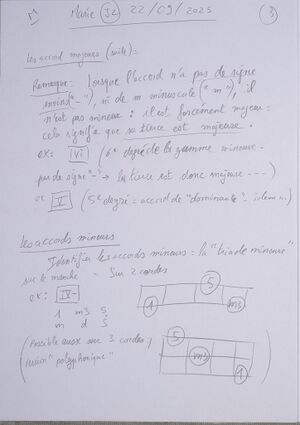 Marie J2 22/09/2025 3
Les accord majeurs (suite) :
Remarque : Lorsque l'accord n'a pas de signe
("-"), ni de m minuscule ("m"), il
n'est pas mineur : il est forcément majeur :
cela signifie que sa tierce est majeure.
ex : VI (6e degré de la gamme mineure.
pas de signe "-" → la tierce est donc majeure ---)
ou V (5e degré = accord de "dominante" : idem...)
Les accords mineurs
Identifier les accords mineurs : la "triade mineure"
sur le manche - Sur 2 cordes
ex : IV- 5
1 m3 5 1 m3
m d S
(Possible aussi sur 3 cordes, 5
version "polyphonique") m3
1